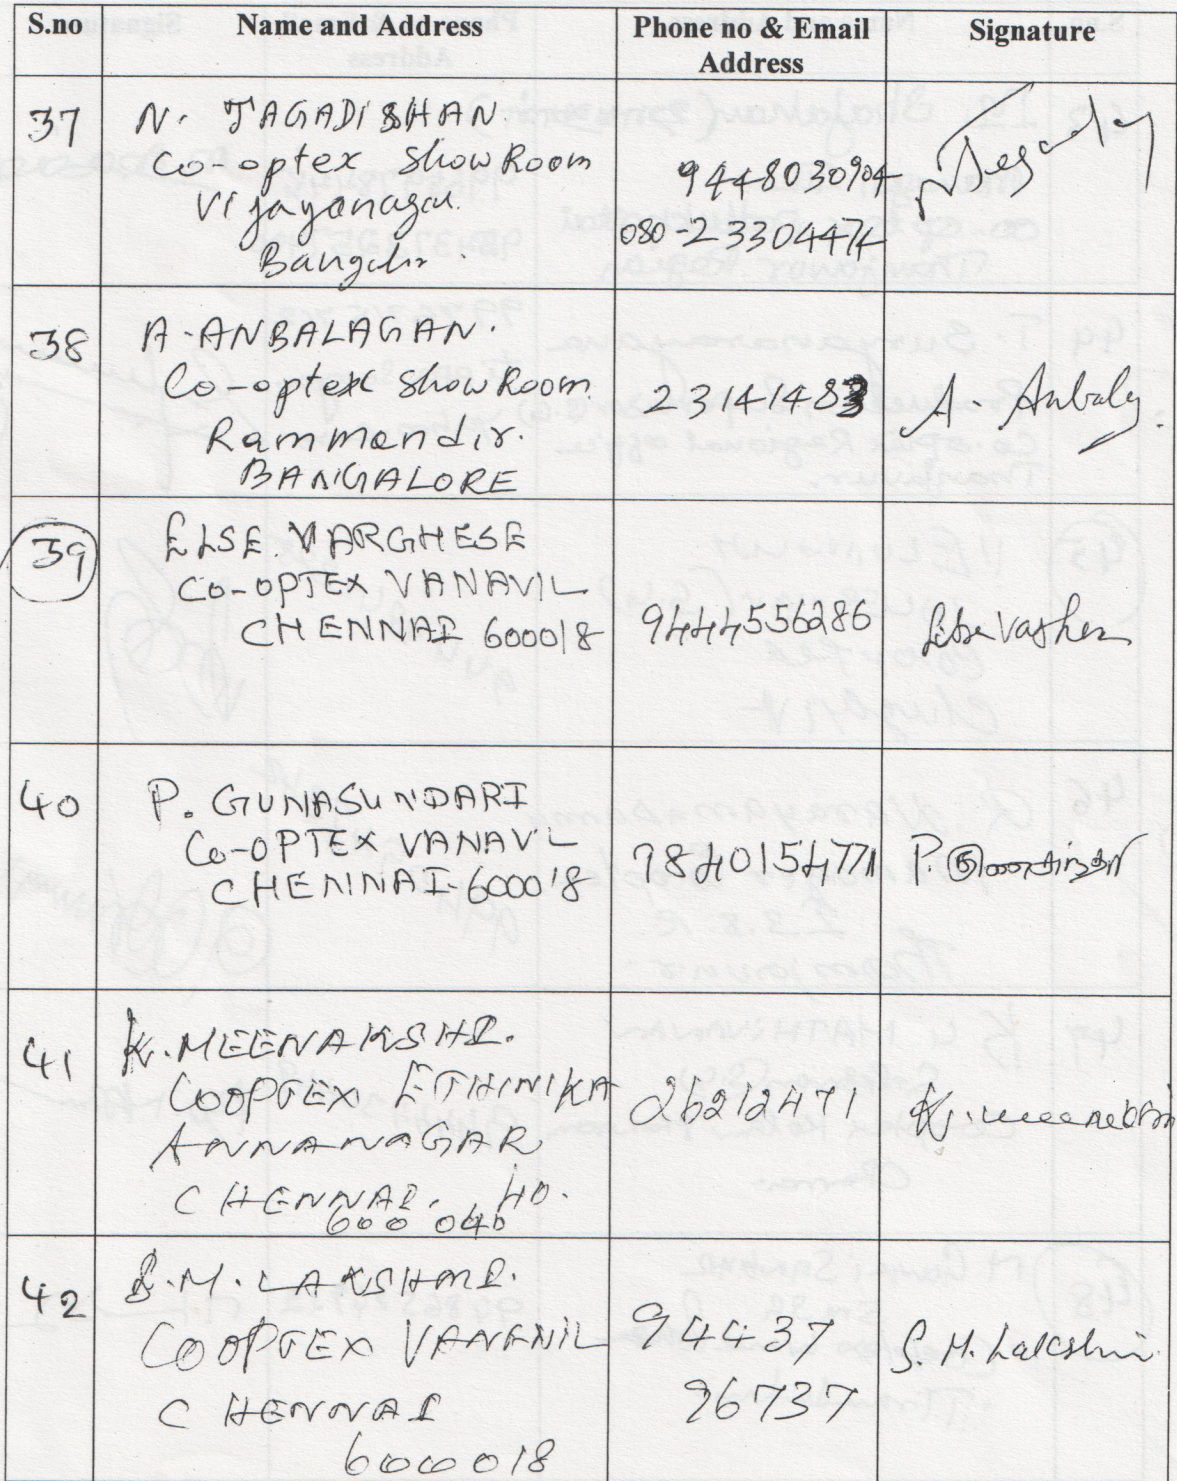 S.no Name and Address Phone no & Email Address Signature
37 N. JAGADISHAN.
Co-optex Show Room
Vijayanagar.
Bangalore.
9448030904
080-23304474
38 A. ANBALAGAN.
Co-optex Show Room
Rammandir.
BANGALORE
23141483
A. Anbalag.
39 ELSE. VARGHESE
CO-OPTEX VANAVIL
CHENNAI 600018
9444556286
40 P. GUNASUNDARI
CO-OPTEX VANAVIL
CHENNAI-600018
9840154771
P. குணசுந்தரி
41 K. MEENAKSHI.
COOPTEX ETHINIKA
ANNANAGAR
CHENNAI. 40.
600 040
26212471
K. Meenakshi
42 S.M. LAKSHMI.
COOPTEX VANAVIL
CHENNAI
600018
94437
96737
S. M. Lakshmi